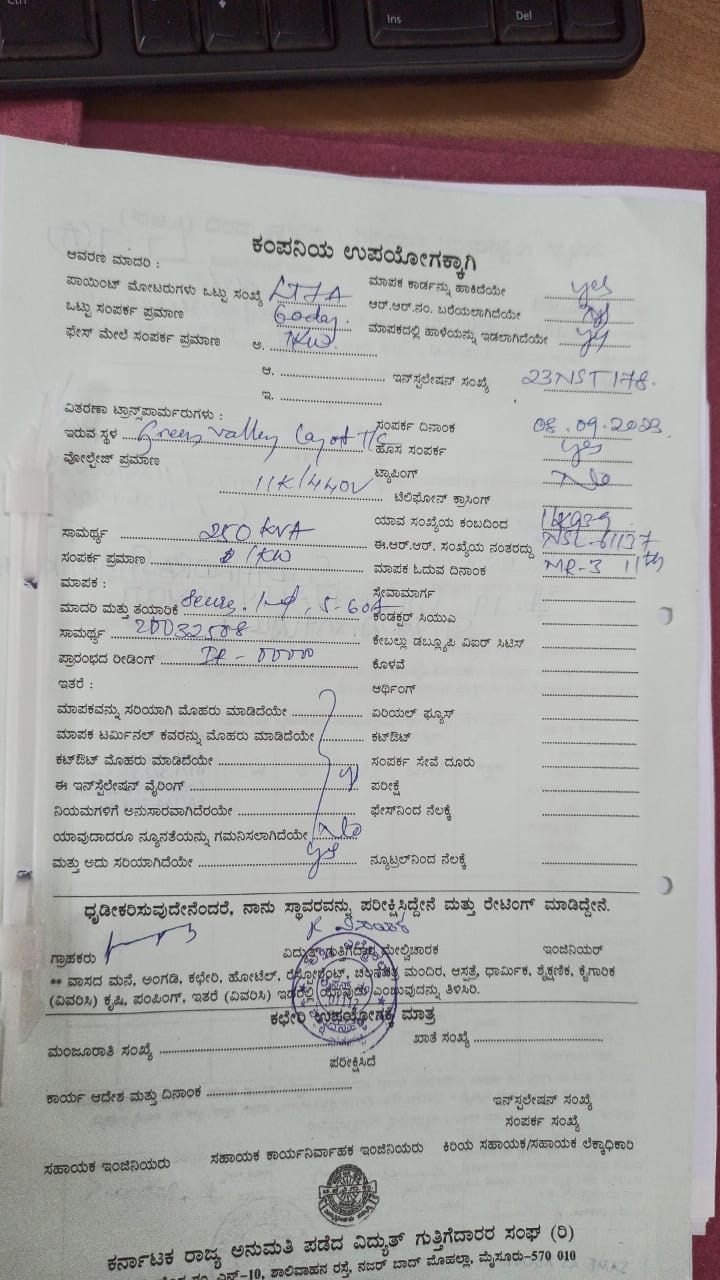 Ctrl
Ins
Del
ಕಂಪನಿಯ ಉಪಯೋಗಕ್ಕಾಗಿ
ಆವರಣ ಮಾದರಿ :
ಮಾಪಕ ಕಾರ್ಡನ್ನು ಹಾಕಿದೆಯೇ yes
ಪಾಯಿಂಟ್ ಮೋಟರುಗಳು ಒಟ್ಟು ಸಂಖ್ಯೆ
ಆರ್.ಆರ್.ನಂ. ಬರೆಯಲಾಗಿದೆಯೇ
ಒಟ್ಟು ಸಂಪರ್ಕ ಪ್ರಮಾಣ
ಮಾಪಕದಲ್ಲಿ ಹಾಳೆಯನ್ನು ಇಡಲಾಗಿದೆಯೇ
ಫೇಸ್ ಮೇಲೆ ಸಂಪರ್ಕ ಪ್ರಮಾಣ ಅ. 1KW
ಆ. ಇನ್‌ಸ್ಟಲೇಷನ್ ಸಂಖ್ಯೆ 23NST178.
ಇ.
ವಿತರಣಾ ಟ್ರಾನ್ಸ್‌ಪಾರ್ಮರುಗಳು :
ಸಂಪರ್ಕ ದಿನಾಂಕ 08.09.2023
ಇರುವ ಸ್ಥಳ Green valley Layout T/C
ಹೊಸ ಸಂಪರ್ಕ yes
ವೋಲ್ಟೇಜ್ ಪ್ರಮಾಣ 11K/440V
ಟ್ಯಾಪಿಂಗ್ No
ಟೆಲಿಫೋನ್ ಕ್ರಾಸಿಂಗ್
ಸಾಮರ್ಥ್ಯ 250 KVA
ಯಾವ ಸಂಖ್ಯೆಯ ಕಂಬದಿಂದ
ಈ.ಆರ್.ಆರ್. ಸಂಖ್ಯೆಯ ನಂತರದ್ದು
ಸಂಪರ್ಕ ಪ್ರಮಾಣ 1KW
ಮಾಪಕ ಓದುವ ದಿನಾಂಕ MR-3 11th
ಮಾಪಕ :
ಸೇವಾಮಾರ್ಗ
ಮಾದರಿ ಮತ್ತು ತಯಾರಿಕೆ 5-60A
ಕಂಡಕ್ಟರ್ ಸಿಯುಎ
ಸಾಮರ್ಥ್ಯ 20032508
ಕೇಬಲ್ಲು ಡಬ್ಲ್ಯೂಪಿ ವಿಐರ್ ಸಿಟಿಸ್
ಪ್ರಾರಂಭದ ರೀಡಿಂಗ್ IR-00000
ಕೊಳವೆ
ಇತರೆ :
ಆರ್ಥಿಂಗ್
ಮಾಪಕವನ್ನು ಸರಿಯಾಗಿ ಮೊಹರು ಮಾಡಿದೆಯೇ
ಏರಿಯಲ್ ಫ್ಯೂಸ್
ಮಾಪಕ ಟರ್ಮಿನಲ್ ಕವರನ್ನು ಮೊಹರು ಮಾಡಿದೆಯೇ
ಕಟ್‌ಔಟ್
ಕಟ್‌ಔಟ್ ಮೊಹರು ಮಾಡಿದೆಯೇ
ಸಂಪರ್ಕ ಸೇವೆ ದೂರು
ಈ ಇನ್‌ಸ್ಟೆಲೇಷನ್ ವೈರಿಂಗ್
ಪರೀಕ್ಷೆ
ನಿಯಮಗಳಿಗೆ ಅನುಸಾರವಾಗಿದೆರಯೇ
ಫೇಸ್‌ನಿಂದ ನೆಲಕ್ಕೆ
ಯಾವುದಾದರೂ ನ್ಯೂನತೆಯನ್ನು ಗಮನಿಸಲಾಗಿದೆಯೇ No
ಮತ್ತು ಅದು ಸರಿಯಾಗಿದೆಯೇ yes
ನ್ಯೂಟ್ರಲ್‌ನಿಂದ ನೆಲಕ್ಕೆ
ಧೃಡೀಕರಿಸುವುದೇನೆಂದರೆ, ನಾನು ಸ್ಥಾವರವನ್ನು ಪರೀಕ್ಷಿಸಿದ್ದೇನೆ ಮತ್ತು ರೇಟಿಂಗ್ ಮಾಡಿದ್ದೇನೆ.
ಗ್ರಾಹಕರು ವಿದ್ಯುತ್ ಗುತ್ತಿಗೆದಾರ ಮೇಲ್ವಿಚಾರಕ ಇಂಜಿನಿಯರ್
** ವಾಸದ ಮನೆ, ಅಂಗಡಿ, ಕಛೇರಿ, ಹೋಟೆಲ್, ರೆಸ್ಟೋರೆಂಟ್, ಚಲನಚಿತ್ರ ಮಂದಿರ, ಆಸ್ಪತ್ರೆ, ಧಾರ್ಮಿಕ, ಶೈಕ್ಷಣಿಕ, ಕೈಗಾರಿಕ
(ವಿವರಿಸಿ) ಕೃಷಿ, ಪಂಪಿಂಗ್, ಇತರೆ (ವಿವರಿಸಿ) ಇದರಲ್ಲಿ ಯಾವುದು ಎಂಬುವುದನ್ನು ತಿಳಿಸಿರಿ.
ಕಛೇರಿ ಉಪಯೋಗಕ್ಕೆ ಮಾತ್ರ
ಮಂಜೂರಾತಿ ಸಂಖ್ಯೆ ಖಾತೆ ಸಂಖ್ಯೆ
ಪರೀಕ್ಷಿಸಿದೆ
ಕಾರ್ಯ ಆದೇಶ ಮತ್ತು ದಿನಾಂಕ
ಇನ್‌ಸ್ಟಲೇಷನ್ ಸಂಖ್ಯೆ
ಸಂಪರ್ಕ ಸಂಖ್ಯೆ
ಸಹಾಯಕ ಇಂಜಿನಿಯರು ಸಹಾಯಕ ಕಾರ್ಯನಿರ್ವಾಹಕ ಇಂಜಿನಿಯರು ಕಿರಿಯ ಸಹಾಯಕ/ಸಹಾಯಕ ಲೆಕ್ಕಾಧಿಕಾರಿ
ಕರ್ನಾಟಕ ರಾಜ್ಯ ಅನುಮತಿ ಪಡೆದ ವಿದ್ಯುತ್ ಗುತ್ತಿಗೆದಾರರ ಸಂಘ (ರಿ)
ಎನ್-10, ಶಾಲಿವಾಹನ ರಸ್ತೆ, ನಜರ್ ಬಾದ್ ಮೊಹಲ್ಲಾ, ಮೈಸೂರು-570 010